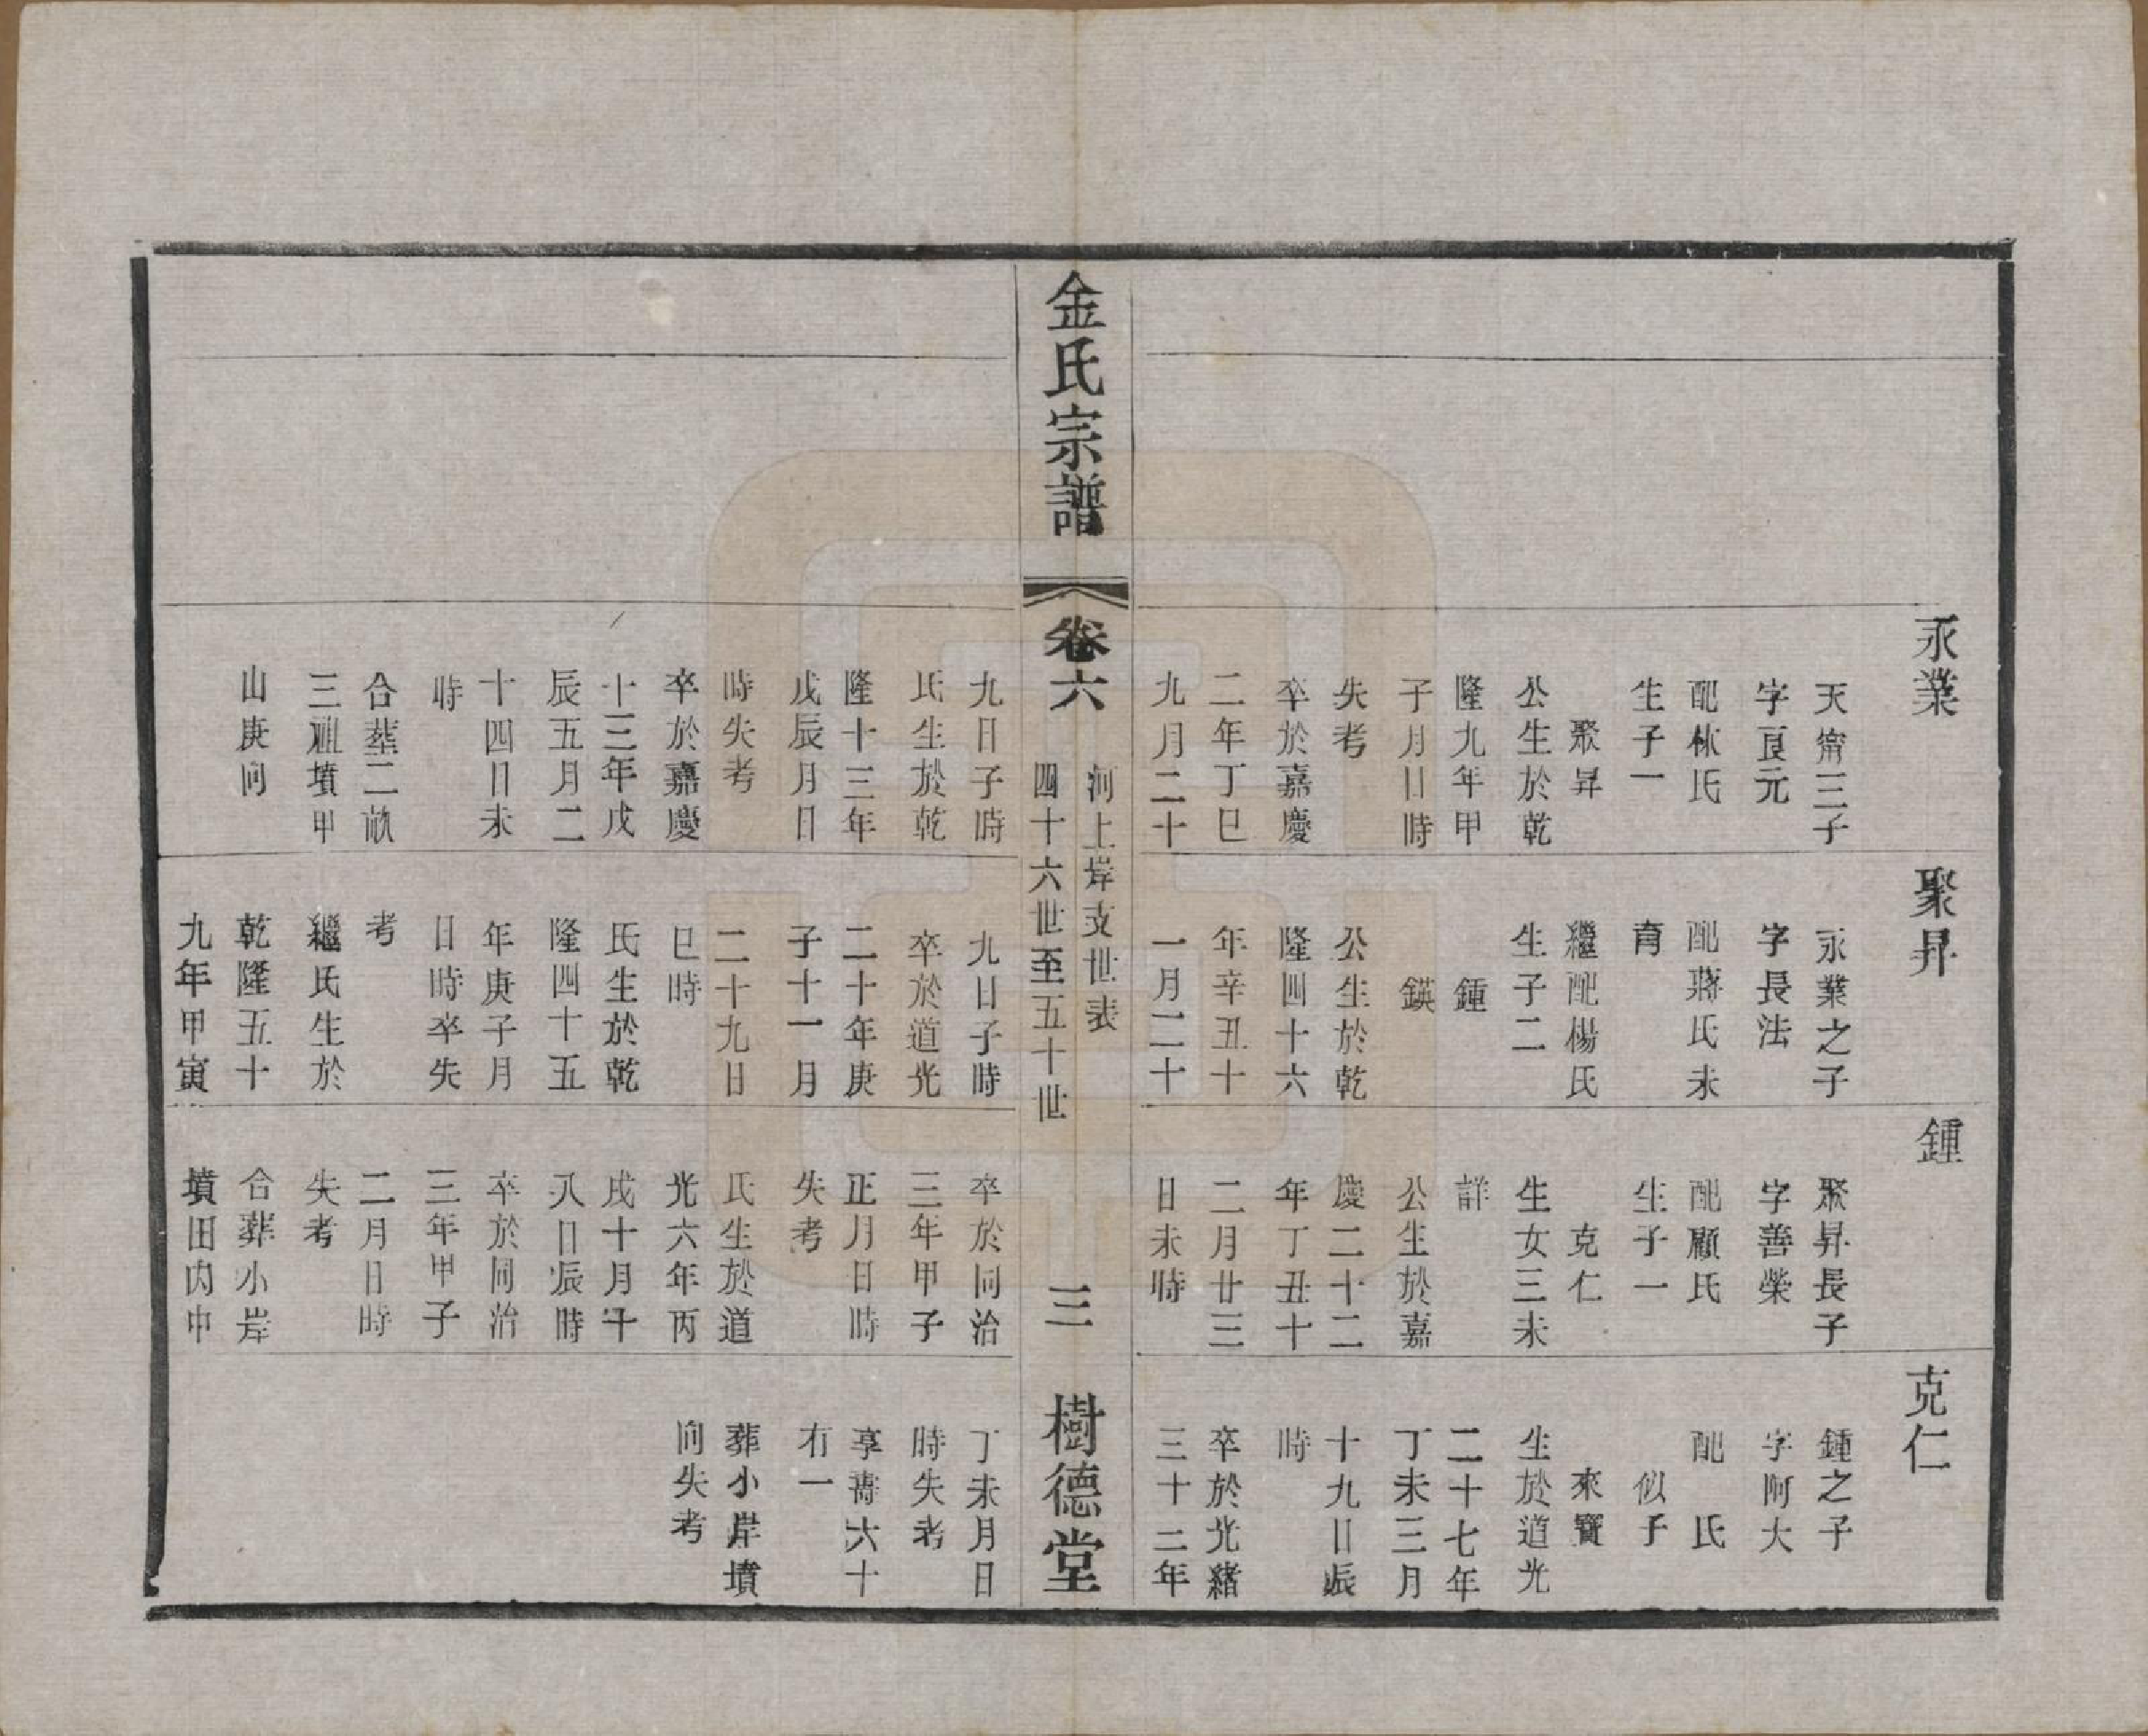 金氏宗譜
卷六
河上岸支世表
四十六世至五十世
三
樹德堂
永業
天甯三子
字良元
配林氏
生子一
聚昇
公生於乾
隆九年甲
子月日時
失考
卒於嘉慶
二年丁巳
九月二十
九日子時
氏生於乾
隆十三年
戊辰月日
時失考
卒於嘉慶
十三年戊
辰五月二
十四日未
時
合塟二畝
三祖墳甲
山庚向
聚昇
永業之子
字長法
配蔣氏未
育
繼配楊氏
生子二
鍾
鍈
公生於乾
隆四十六
年辛丑十
一月二十
九日子時
卒於道光
二十年庚
子十一月
二十九日
巳時
氏生於乾
隆四十五
年庚子月
日時卒失
考
繼氏生於
乾隆五十
九年甲寅
鍾
聚昇長子
字善榮
配顧氏
生子一
克仁
生女三未
詳
公生於嘉
慶二十二
年丁丑十
二月廿三
日未時
卒於同治
三年甲子
正月日時
失考
氏生於道
光六年丙
戌十月十
八日辰時
卒於同治
三年甲子
二月日時
失考
合葬小岸
墳田內中
克仁
鍾之子
字阿大
配　氏
似子
來寶
生於道光
二十七年
丁未三月
十九日辰
時
卒於光緒
三十二年
丁未月日
時失考
享壽六十
有一
葬小岸墳
向失考